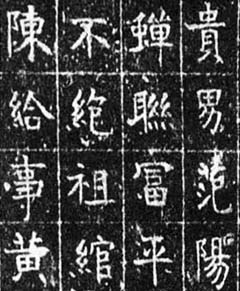 貴男范陽
蟬聯冨平
不絶祖綰
陳給事黄